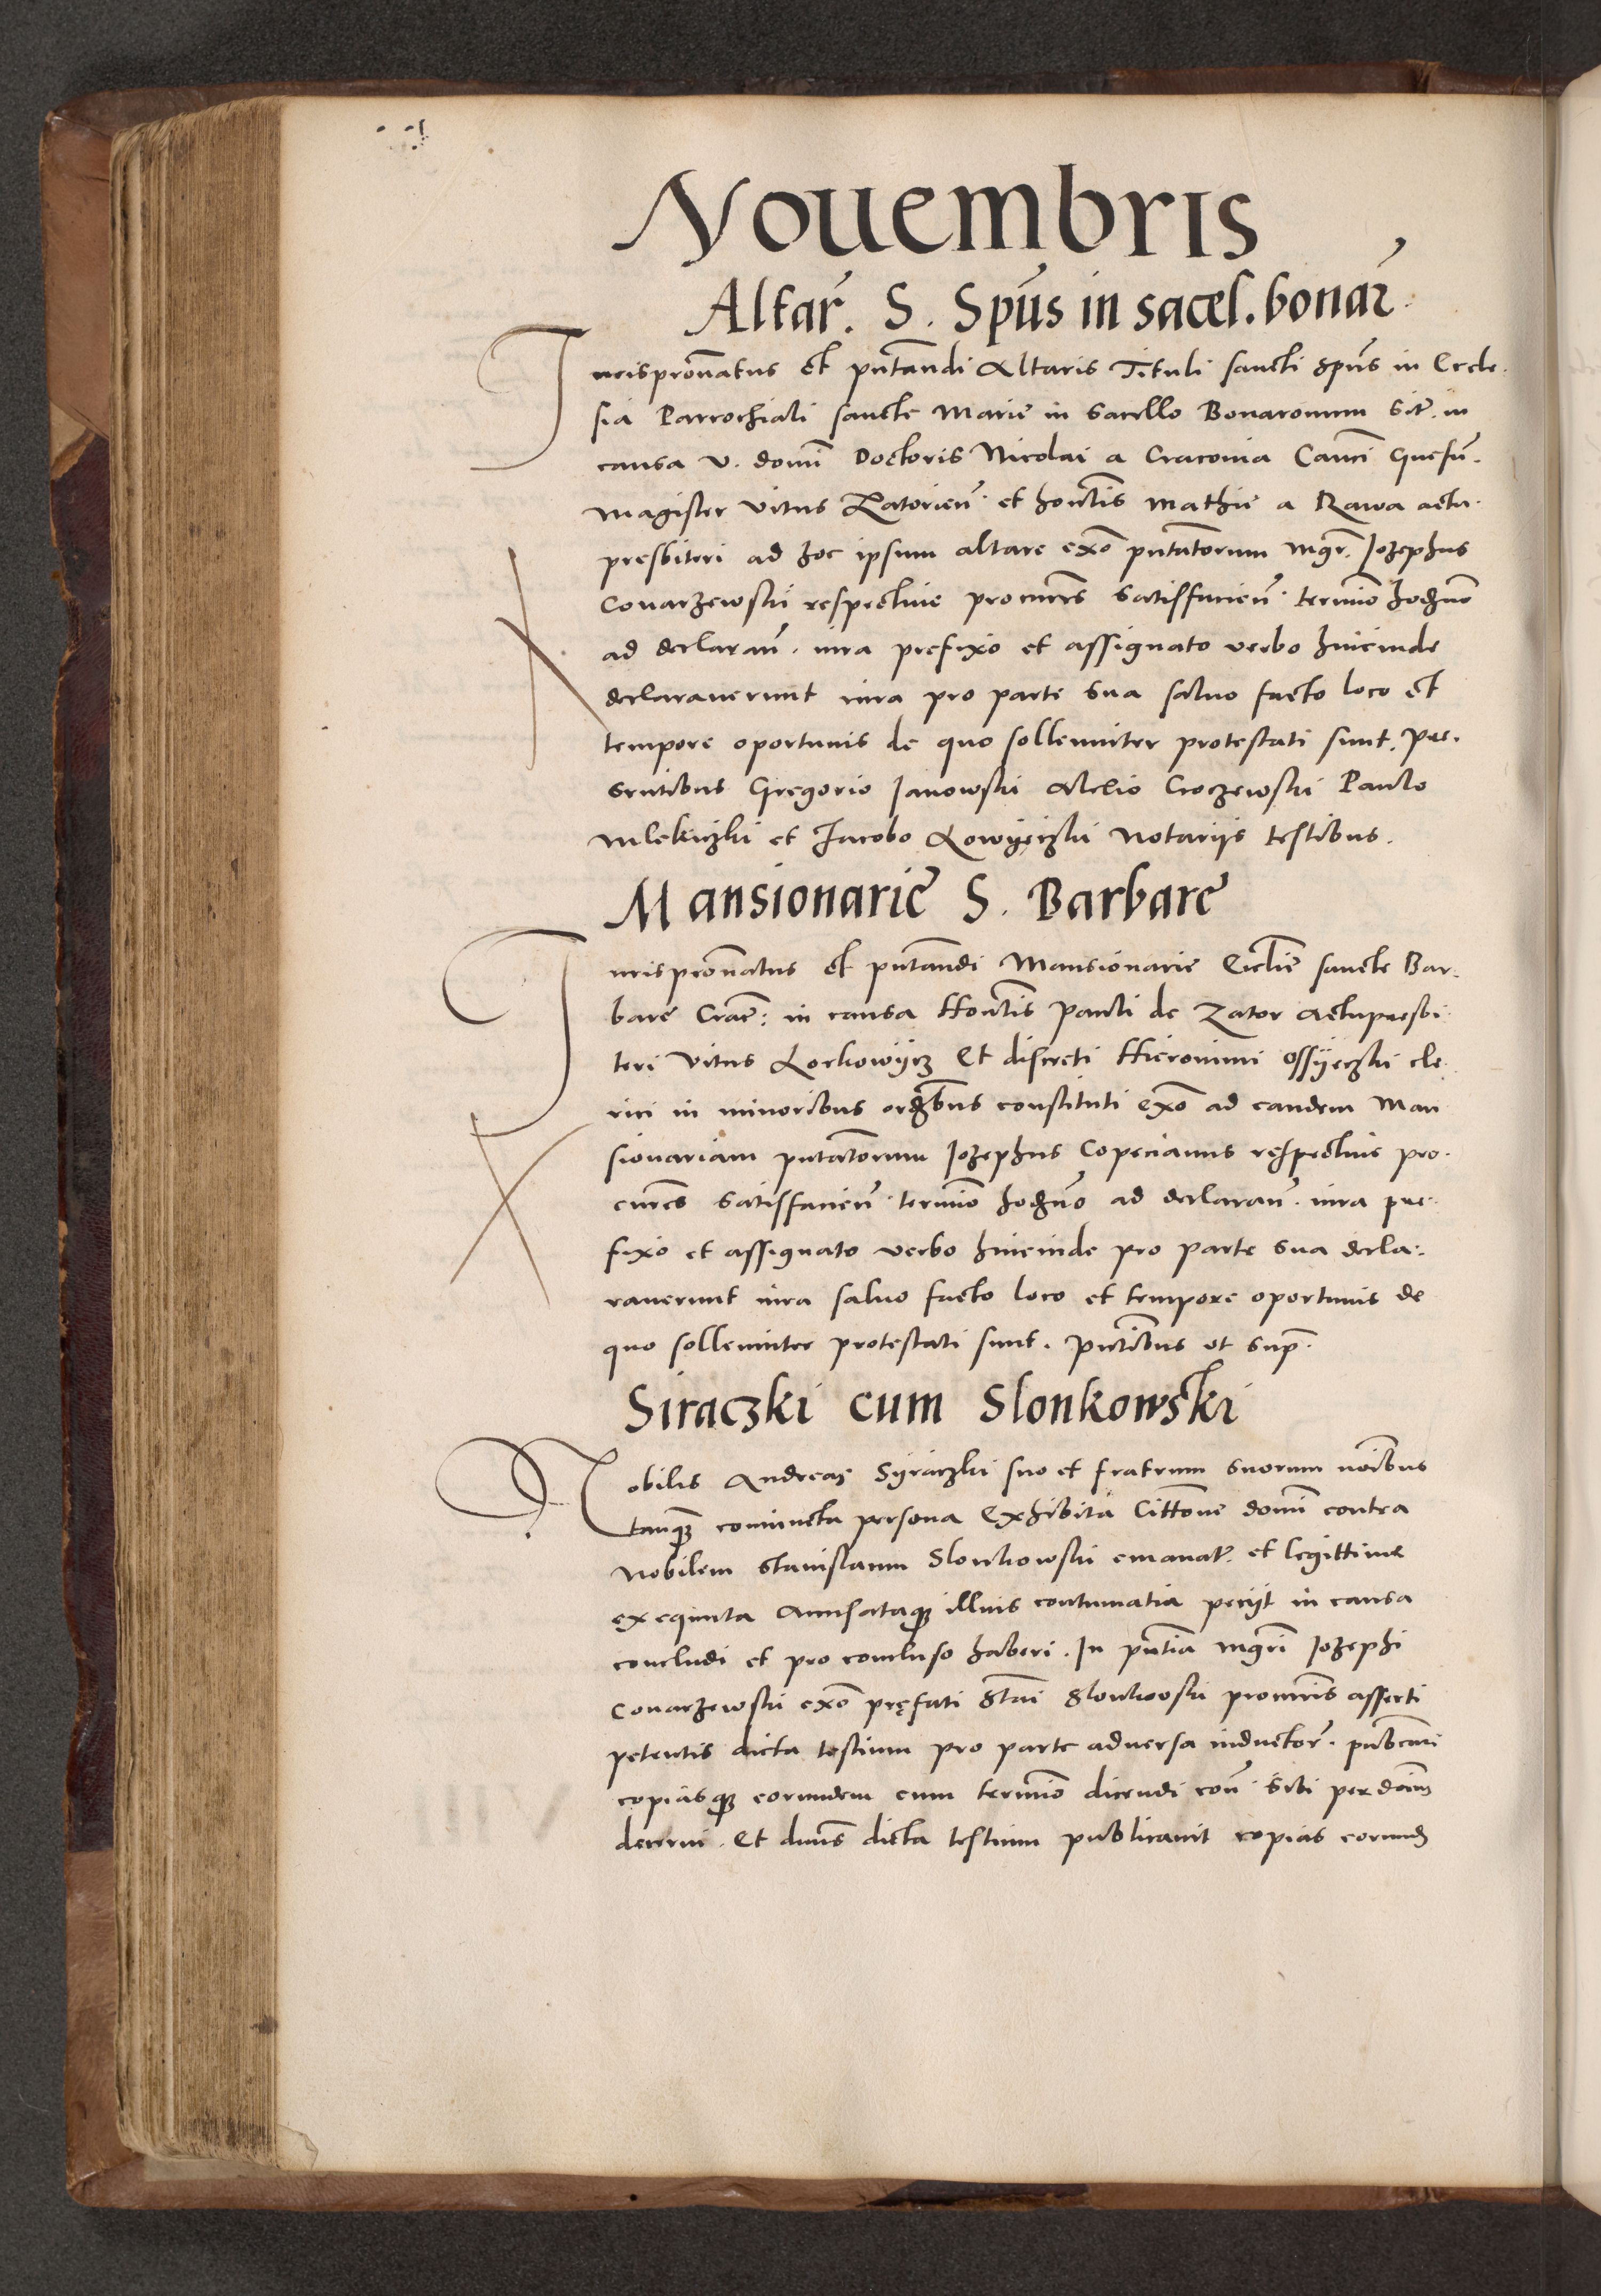 Nouembris
Altar̃. S. Spũs in sacel. bonar̃.
Jurisprõnatus et pñtandi Altaris Tituli sancti Spũs in Eccle.
sia Parrochiali sancte Marie in Sacello Bonaronum Sit̃. in
causa V. domĩ Doctoris Nicolai a Cracovia Canõci Gnesñ.
magister Vitus Zatorień. et honĕtis Mathie a Rawa actu.
presbiteri ad hoc ipsum altare exõ pñtatorum Mgr̃. Jozephus
Conarzewski respectiue procurẽs Satisfacień. termiõ hodˀno
ad declarañ. iura prefixo et assignato verbo hincinde
declarauerunt iura pro parte sua saluo facto loco et
tempore oportunis de quo sollemniter protestati sunt. Pre.
sentibus Gregorio Janowski Alexio Croczewski Paulo
Mlekiczki et Jacobo Lowyeczki Notariis testibus.
Mansionarie S. Barbare
Jurisprõnatus et pñtandi Mansionarie Ecclie sancte Bar.
bare Crac̃: in causa Honĕtis Pauli de Zator Actupresbi.
teri Vitus Lorkowycz Et discreti Hieronimi Ossyeczki cle.
rici in minoribus ordˀbus constituti exõ ad eandem Man
sionariam pñtatorum Jozephus Copecianus respectiue pro.
curẽs Satisfacień. termiõ hodˀño ad declarañ. iura pre.
fixo et assignato verbo hincinde pro parte sua decla.
rauerunt iura saluo facto loco et tempore oportunis de
quo sollemniter protestati sunt. Pñtibus ut sup̃.
Siraczki cum Slonkowski
Nobilis Andreas Syraczki suo et fratrum suorum noĩbus
tanq̃ coniuncta persona Exhibita Cittõne domĩ contra
Nobilem Stanislaum Slonkowski emanat̃. et legittime
exequuta Accusataq; illius contumatia peciit in causa
concludi et pro concluso haberi. In pñtia Mgrĩ Jozephi
Conarzewski exõ pręfati Stãi Slonkowski procurĩs asserti
petentis dicta testium pro parte aduersa inductor̃. publicari
copiasq; eorundem cum termiõ dicendi cõn̄. Sibi per doĩm
decerni. Et dnũs dicta testium publicauit copias eorund̃